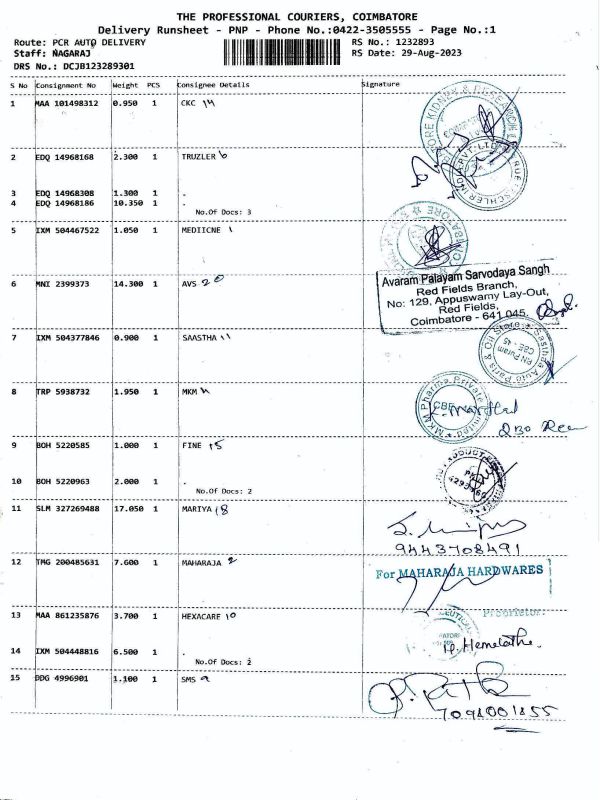 THE PROFESSIONAL COURIERS, COIMBATORE
Delivery Runsheet - PNP - Phone No.:0422-3505555 - Page No.:1
Route: PCR AUTO DELIVERY
RS No.: 1232893
Staff: NAGARAJ
RS Date: 29-Aug-2023
DRS No.: DCJB123289301
S No Consignment No Weight PCS Consignee Details Signature
1 MAA 101498312 0.950 1 CKC
2 EDQ 14968168 2.300 1 TRUZLER 6
3 EDQ 14968308 1.300 1 .
4 EDQ 14968186 10.350 1 .
No.Of Docs: 3
5 IXM 504467522 1.050 1 MEDIICNE 1
6 MNI 2399373 14.300 1 AVS 20
Avaram Palayam Sarvodaya Sangh
Red Fields Branch,
No: 129, Appuswamy Lay-Out,
Red Fields,
Coimbatore - 641 045.
7 IXM 504377846 0.900 1 SAASTHA 11
8 TRP 5938732 1.950 1 MKM
MKM Pharma Private Limited
CBE
9 BOH 5220585 1.000 1 FINE 15
10 BOH 5220963 2.000 1 .
No.Of Docs: 2
11 SLM 327269488 17.050 1 MARIYA 18
9443708491
12 TMG 200485631 7.600 1 MAHARAJA 2
For MAHARAJA HARDWARES
Proprietor
13 MAA 861235876 3.700 1 HEXACARE 10
14 IXM 504448816 6.500 1 .
No.Of Docs: 2
H. Hemelathe.
15 DDG 4996901 1.100 1 SMS 9
7098001855